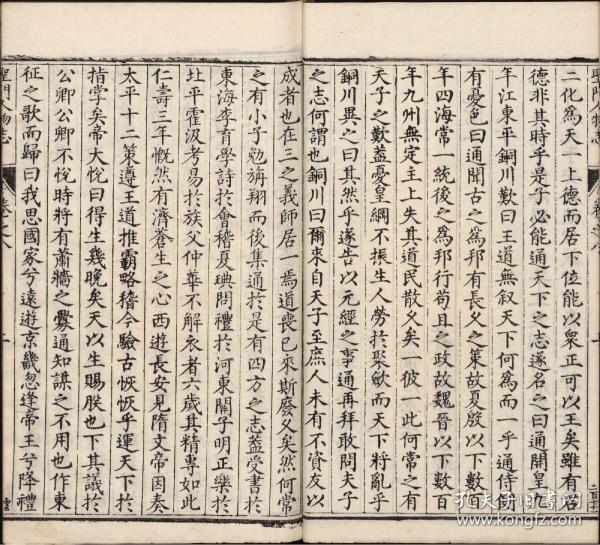 二化爲天一上德而居下位能以衆正可以王矣雖有君
德非其時乎是子必能通天下之志遂名之曰通開皇九
年江東平銅川歎曰王道無叙天下何爲而一乎通侍側
有憂色曰通聞古之爲邦有長久之策故夏殷以下數百
年四海常一統後之爲邦行苟且之政故魏晉以下數百
年九州無定主上失其道民散久矣一彼一此何常之有
天子之歎蓋憂皇綱不振生人勞於聚歛而天下將亂乎
銅川異之曰其然乎遂告以元經之事通再拜敢問夫子
之志何謂也銅川曰爾來自天子至庶人未有不資友以
成者也在三之義師居一焉道喪已來斯廢久矣然何常
之有小子勉旃翔而後集通於是有四方之志蓋受書於
東海李育學詩於會稽夏琠問禮於河東關子明正樂於
北平霍汲考易於族父仲華不解衣者六歲其精專如此
仁壽三年慨然有濟蒼生之心西遊長安見隋文帝因奏
太平十二策遵王道推霸略稽今驗古恢恢乎運天下於
指掌矣帝大悅曰得生幾晚矣天以生賜朕也下其議於
公卿公卿不悅時將有蕭牆之釁通知謀之不用也作東
征之歌而歸曰我思國家兮遠遊京畿忽逢帝王兮降禮
聖門人物志
卷之八
孔夫子旧书网
www.kongfz.com